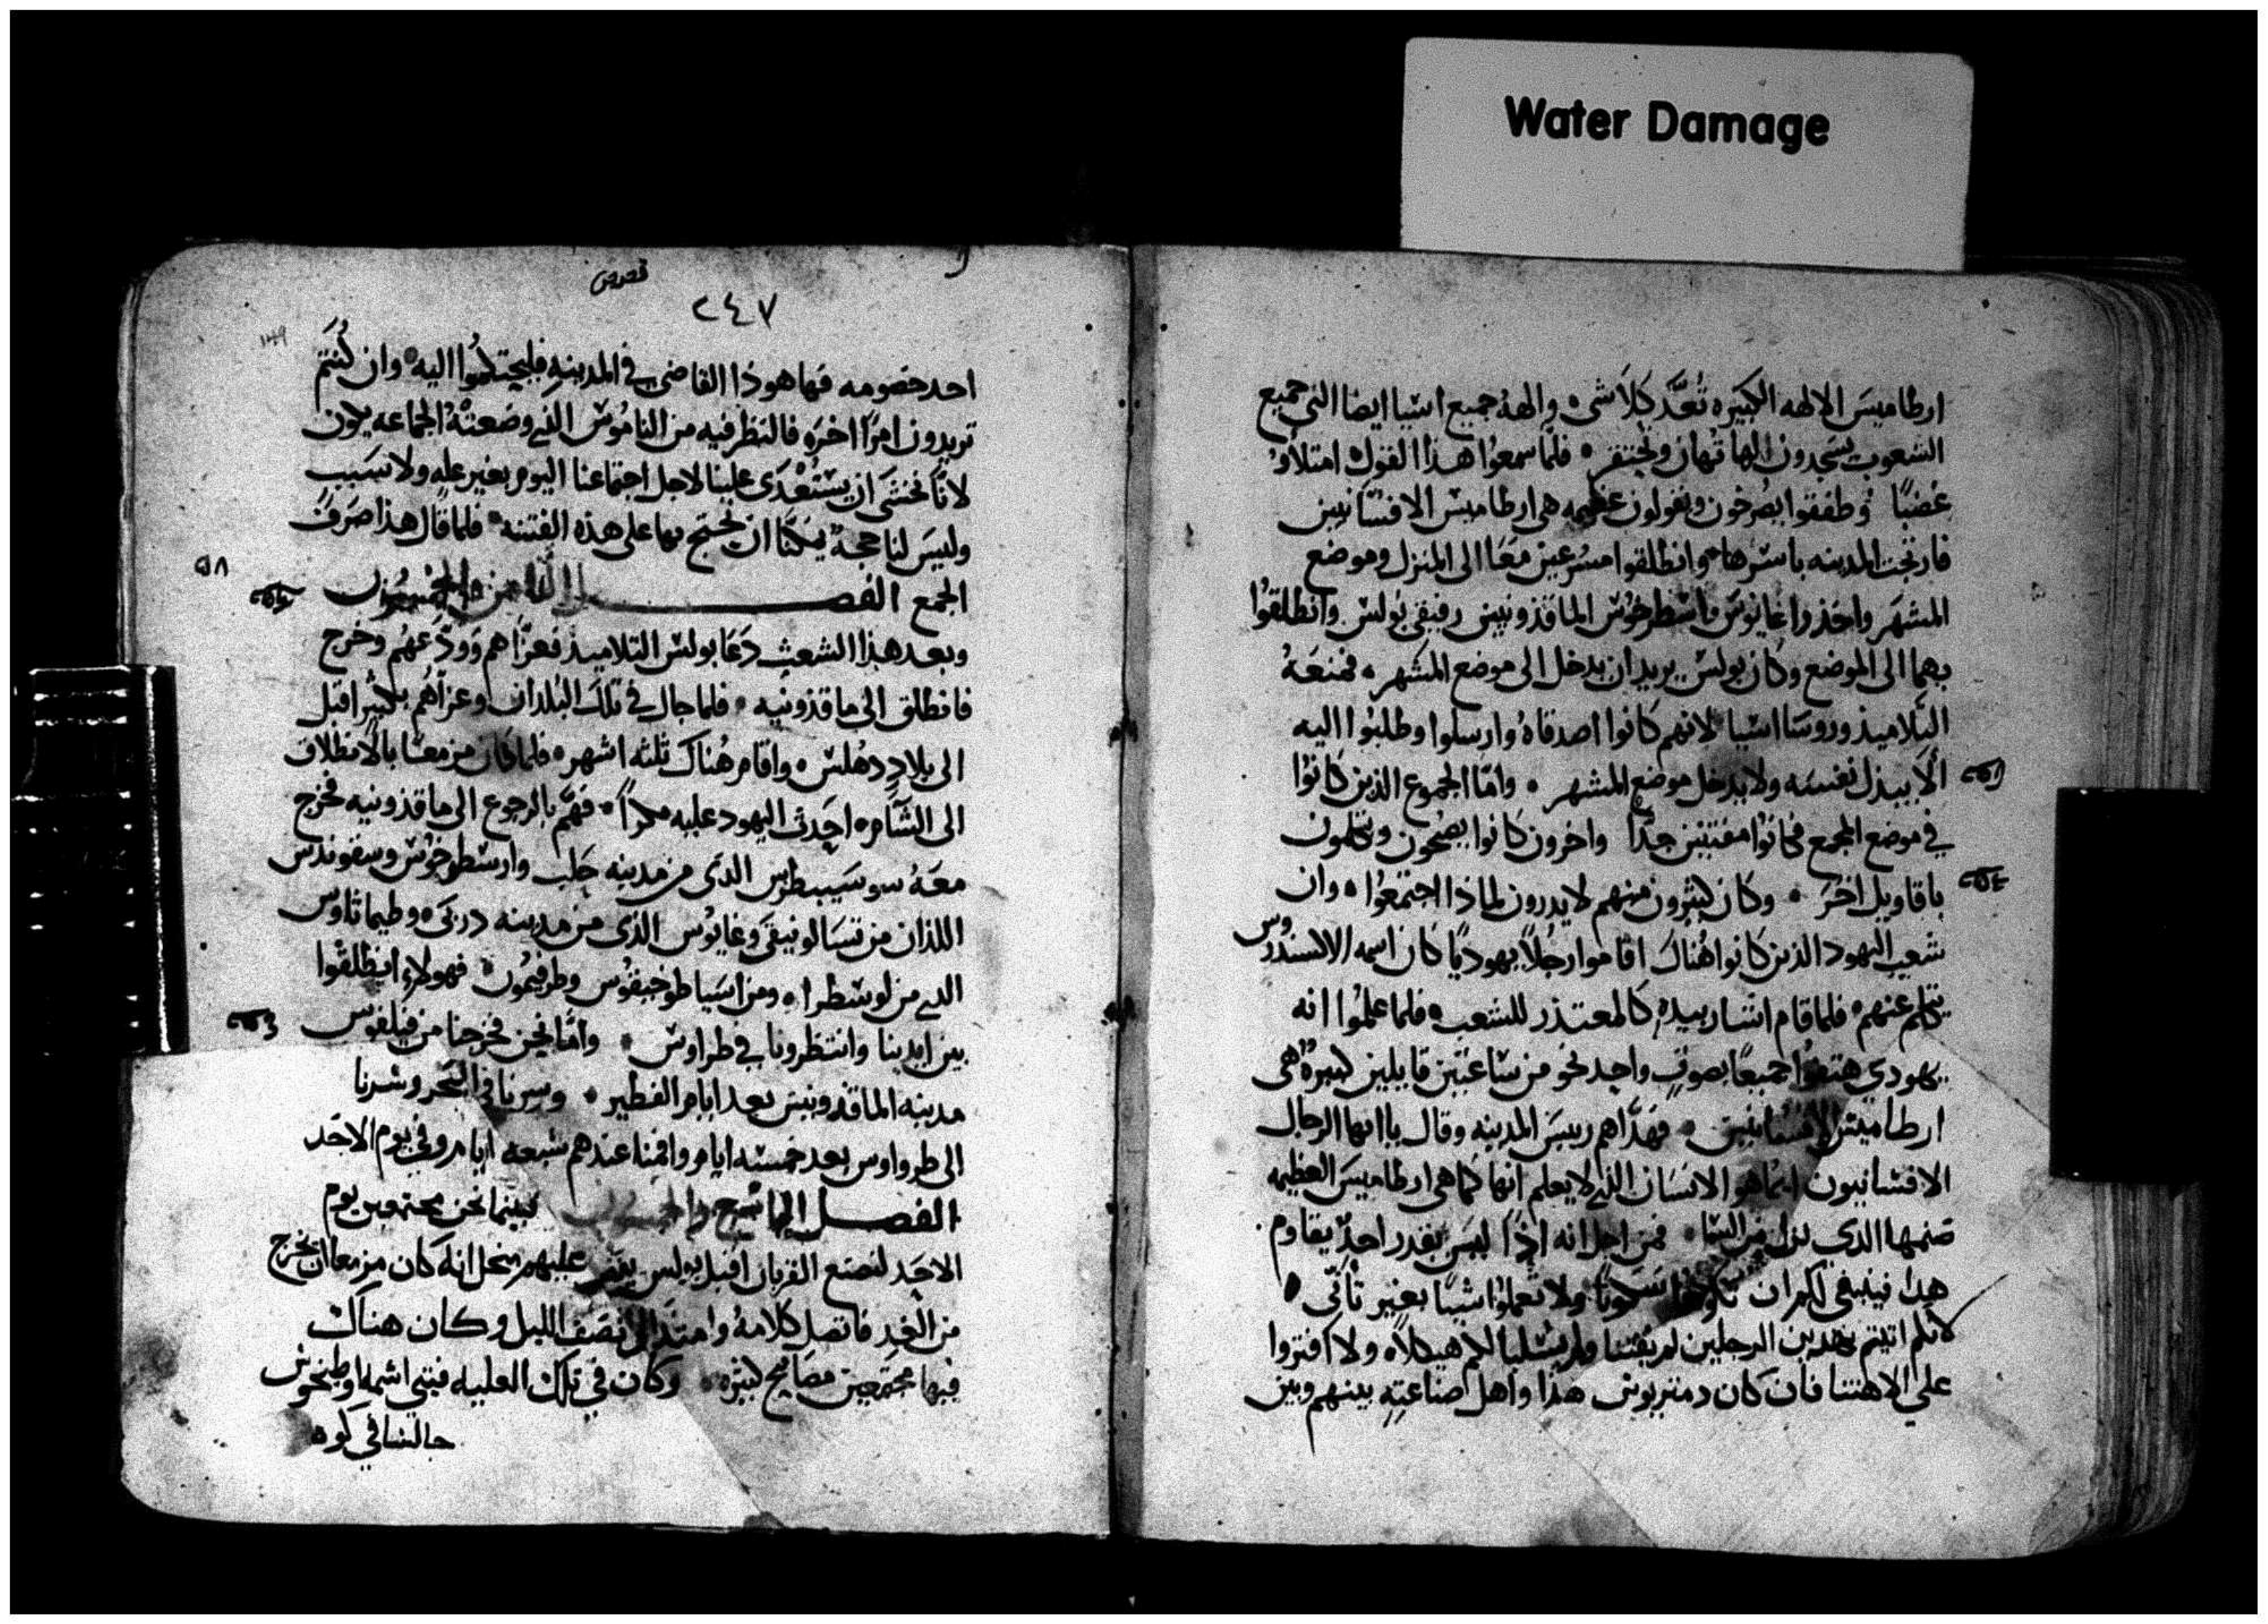 Water Damage
ارطاميسَ الالهه الكبيره تُعدَّ كَلاَ شى، والهة جميع اسيا ايضا التى جميع
الشعوب يسَجدون الها تهان وتحتقر ٠ فلما سمعُوا هذا القول امتلأوُ
غضبًا وُطفقوا يصُرخون ويقولون عظيمه هى ارطاميس الافسَانيين
فارتجت المدينه باسَرها وانطلقوا مسُرعين مَعَا الى المنزل وموضع
المشهَر واخذوا غايوسَ واسطرخوُس الماقذونيين رفيقى بُولس وانطلقوُا
بهما الى الموضع وكان بولس يريد ان يدخل الى موضع المشهر ٠ فمنعَهُ
التلاميذ وروسَا اسَيا لانهم كانوا اصدقاهُ وارسلوا وطلبُوا اليه
ألاَ يبذل نفسَه ولا يدخل موضع المشهر ٠ وامَّا الجموع الذين كانوُا
فى موضع المجمع فكانوُا مفتتنين جدًا واخرون كانوا يصُيحون ويتكلمون
باقاويل اخرَ ٠ وكان كثيرُون منهم لا يدرون لماذا اجتمَعُوا ٠ وان
شعب اليهود الذين كانوا هُناك اقاموا رجُلاً يهوديًا كان اسمه الاسكندروس
يتكلم عنهم ٠ فلما قام اشار بيدهِ كالمعتذر للشعب ٠ فلما علمُوا انه
يهودي هتفوُا جميعًا بصوتٍ واحِد نحو من سَاعَتين قايلين كبيرةٌ هى
ارطاميسَ الافسُسَانيين ٠ فهَدَّاهم رييسَ المدينه وقال ياايها الرجال
الافسَانيون ايمُا هو الانسَان الذي لا يعلم انها كما هى ارطاميسَ العظيمه
صنمها الذى نزل من السَما ٠ فمن اجل انه اذًا ليسَ يقدر احدٌ يقاوم
هذا فينبغى لكم ان تكونوا سَكوتًا ولا تعملوُا شيًا بغير تأنّى ٠
لانكم اتيتم بهدين الرجلين لم يقتنا ولم يسَلبا لكم هيكلاً ولا افتروا
على الاهتنا فان كان دمتريوس هذا واهل صناعتِهِ بينهم وبين
قصص
٢٤٧
١٣٩
احد خصومه فها هوذا القاضى فى المدينهِ فليحتكمُوا اليه ٠ وان كُنتم
تريدون امرًا اخرَ فالنظر فيه من الناموُس الذي وضعتهُ الجماعه يكون
لانَّا نخشَى ان يسَتعْدَى علينا لاجل اجتماعنا اليوم بغير عله ولا سَبب
وليسَ لنا حجة يمكنّا ان نحتج بها على هذه الفتنه ٠ فلما قال هذا صَرفَ
الجمع الفصــل الثامن والخمسُون
٥٨
وبعد هذا الشغب دَعَا بولس التلاميذ فعزّاهم وَودَّعَهُم وخرج
فانطلق الى ماقذونيه ٠ فلما جال فى تلك البُلدان وعزاهُم بكثيرٍ اقبل
الى بلادِ هلس ٠ واقام هُناك ثلثه اشهر ٠ فلما كان مزمعًا بالانطلاق
الى الشآم ٠ احدث اليهود عليه مكراً ٠ فهَمَّ بالرجوع الى ماقذونيه فخرج
معَهُ سوسَيبطرس الذى من مدينه حَلب وارسَطرخوُس وسقوندس
اللذان من تسَالونيقى وغايوُس الذى من مدينه دربَى ٠ وطيماثاوس
الذي من لوسَطرا ٠ ومن اسَيا طوخيقوُس وطرفيموُن ٠ فهولاءِ انطلقوُا
بين ايدينا وانتظرونا فى طراوس ٠ وامَّا نحن فخرجنا من فيلفوُس
مدينه الماقذونيين بعد ايام الفطير ٠ وسرنا فى البَحر وسرنا
الى طرواوس بعد خمسَه ايام واقمنا عندهم سَبعه ايام وفى يوم الاحَد
الفصــل التاسع والخمسون فبينما نحن مجتمعين يوم
الاحَد لنصنع القربان اقبل بولس يقص عليهم من اجل انه كان مزمعا ان يخرج
من الغدِ فاتصل كلامهُ وامتدَّ الى نصف الليل وكان هناك
فيها مجتمعين مصَابيح كثيره ٠ وكان فى تلك العليه فتى اسَمه اوطيخوس
جالسَا فى كوه